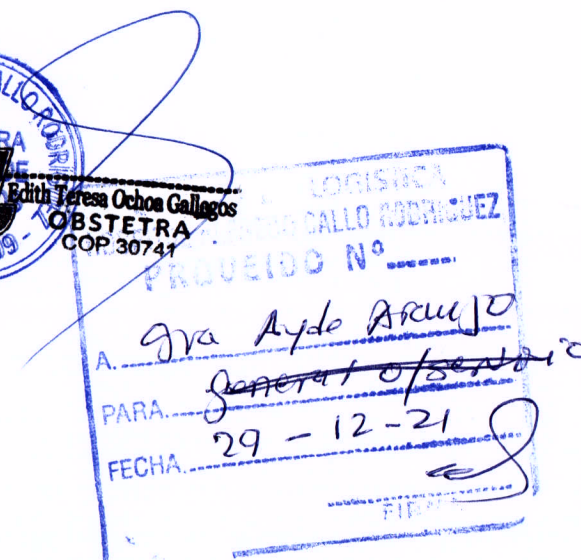 CALLO RODRI
RA
Edith Teresa Ochoa Gallegos
OBSTETRA
COP 30741
LOGISTICA
CALLO RODRIGUEZ
PROVEIDO Nº
A. Sra Ayde Araujo
PARA. generar o/servicio
FECHA. 29 - 12 - 21
FIRMA